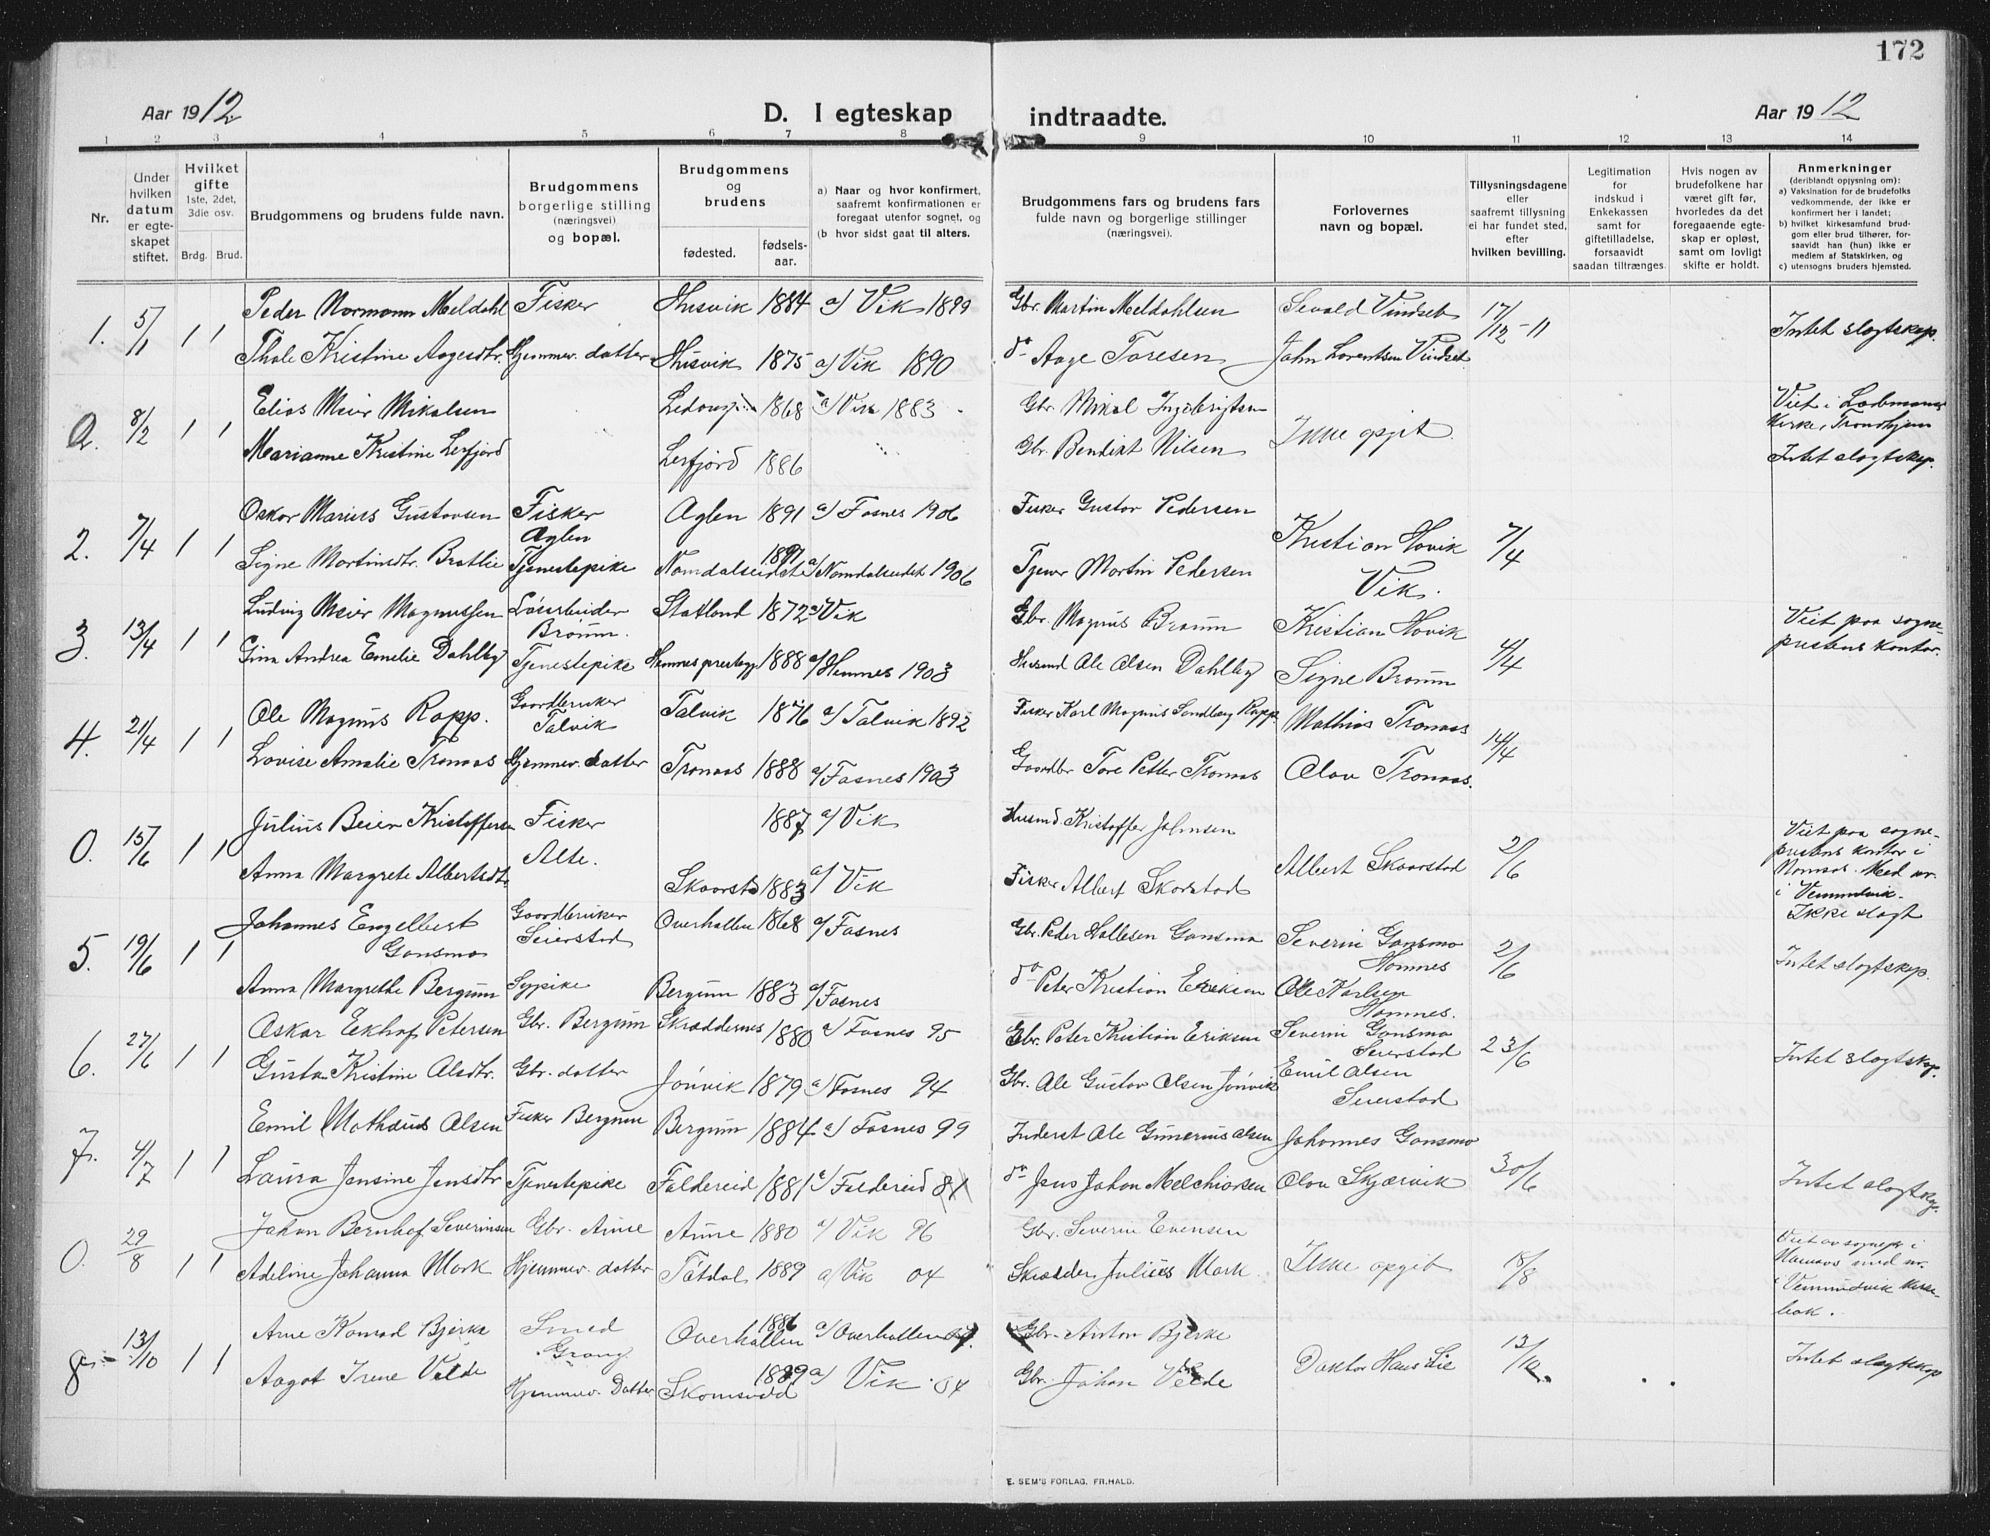 172
Aar 1912 D. I egteskap indtraadte. Aar 1912
1 2 3 4 5 6 7 8 9 10 11 12 13 14
Nr.
Under hvilken datum er egteskapet stiftet.
Hvilket gifte 1ste, 2det, 3die osv.
Brdg. Brud.
Brudgommens og brudens fulde navn.
Brudgommens borgerlige stilling (næringsvei) og bopæl.
Brudgommens og brudens
fødested. fødsels-aar.
a) Naar og hvor konfirmert, saafremt konfirmationen er foregaat utenfor sognet, og
(b hvor sidst gaat til alters.
Brudgommens fars og brudens fars fulde navn og borgerlige stillinger (næringsvei).
Forlovernes navn og bopæl.
Tillysningsdagene eller saafremt tillysning ei har fundet sted, efter hvilken bevilling.
Legitimation for indskud i Enkekassen samt for giftetilladelse, forsaavidt saadan tiltrænges.
Hvis nogen av brudefolkene har været gift før, hvorledes da det foregaaende egteskap er opløst, samt om lovligt skifte er holdt.
Anmerkninger
(deriblandt opjysning om):
a) Vaksination for de brudefolks vedkommende, der ikke er konfirmert her i landet;
b) hvilket kirkesamfund brudgom eller brud tilhører, forsaavidt han (hun) ikke er medlem af Statskirken, og
c) utensogns bruders hjemsted.
1. 5/1 1 1 Peder Normann Meldahl Fisker Husvik 1884 a) Vik 1899 Gbr. Martin Meldahlsen Sevald Vindset 17/12-11 Intet slægtskap.
Thale Kristine Aagesdtr. Hjemmev. datter Husvik 1875 a) Vik 1890 do Aage Toresen John Lorentsen Vindset
a. 8/2 1 1 Elias Meier Mikalsen 1868 a) Vik 1883 Gbr. Mikal Ingebrigtsen Ikke opgit Viet i
kirke, Trondhjem
Marianne Kristine Lerfjord Lerfjord 1886 Gbr. Bendikt Nilsen Intet slægtskap.
2. 7/4 1 1 Oskar Marius Gustavsen Fisker Aglen Aglen 1891 a) Fosnes 1906 Fisker Gustav Pedersen Kristian Hovik Vik. 7/4
Signe Martinsdtr. Bratlie Tjenestepike Namdalseidet 1891 a) Namdalseidet 1906 Martin Pedersen
3. 13/4 1 1 Ludvig Meier Magnussen Løsarbeider Statland 1872 a) Vik Gbr. Magnus Kristian Hovik 4/4 Viet paa sogneprestens kontor.
Gina Andrea Emelie Dahlby Tjenestepike Hemnes prestegj 1888 a) Hemnes 1903 Husmd Ole Olsen Dahlby Signe
4. 21/4 1 1 Ole Magnus Rapp. Gaardbruker Talvik Talvik 1876 a) Talvik 1892 Fisker Karl Magnus Sandberg Rapp Mathias Tranaas 14/4
Lovise Amalie Tranaas Hjemmev. datter Tranaas 1888 a) Fosnes 1903 Gaardbr Tore Petter Tranaas Olav Tranaas.
0. 15/6 1 1 Julius Beier Kristoffersen Fisker Alte. 1887 a) Vik Husmd. Kristoffer Johnsen Albert Skaarstad 2/6 Viet paa sogneprestens kontor i Namsos. Med nr. i Vemundvik. Ikke slægt
Anna Margrete Albertsdtr. Skaarstd 1883 a) Vik Fisker Albert Skorstad
5. 19/6 1 1 Johannes Engelbert Gansmo Gaardbruker Seierstad Overhallen 1868 a) Fosnes Gbr. Peder Gansmo Severin Gansmo Homnes 2/6 Intet slægtskap.
Anna Margrethe Bergum Sypike Bergum 1883 a) Fosnes do Peter Kristian Eriksen Ole Karlsen Homnes.
6. 27/6 1 1 Oskar Ekhof Petersen Gbr. Bergum Skræddernes 1880 a) Fosnes 95 Gbr. Peter Kristian Eriksen Severin Gansmo Seierstad 23/6 Intet slægtskap.
Gusta Kristine Olsdtr. Gbr. datter Jønvik 1879 a) Fosnes 94 Gbr. Ole Gustav Olsen Jønvik Emil Olsen Seierstad
7. 4/7 1 1 Emil Mathæus Olsen Fisker Bergum Bergum 1884 a) Fosnes 99 Inderst Ole Gunerius Olsen Johannes Gansmo 30/6 Intet slægtskap.
Laura Jensine Jensdtr. Tjenestepike Foldereid 1881 a) Foldereid do Jens Johan Melchiorsen Olav Skjærvik
0. 29/8 1 1 Johan Bernhof Severinsen Gbr. Aune Aune 1880 a) Vik 96 Gbr. Severin Evensen Ikke opgit 18/8 Viet av sognepr i Namsos med nr. i Vemundvik kirkebok.
Adeline Johanna Mork Hjemmev. datter Tøtdal 1889 a) Vik 04 Skrædder Julius Mork.
8. 13/10 1 1 Arne Konrad Bjerke Smed Grong Overhallen 1886 a) Overhallen Gbr. Anton Bjerke Doktor Hans Lie 13/10 Intet slægtskap
Aagot Irene Velde Hjemmev. Datter 1889 a) Vik 04 Gbr. Johan Velde
E. SEM'S FORLAG, FR.HALD.